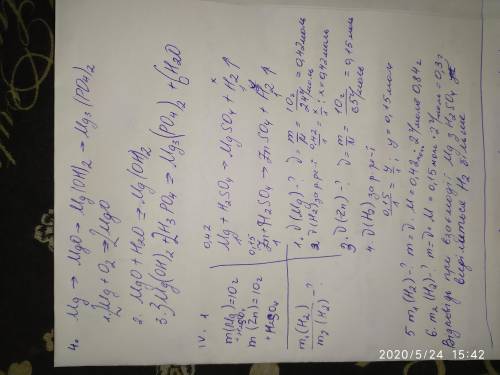 4. Mg → MgO → Mg(OH)2 → Mg3(PO4)2
1. 2Mg + O2 → 2MgO
2. MgO + H2O → Mg(OH)2
3. 3Mg(OH)2 + 2H3PO4 → Mg3(PO4)2 + 6H2O
IV. 1
m(Mg) = 10г
+ H2SO4
m(Zn) = 10г
+ H2SO4
m1(H2) - ?
m2(H2) - ?
0,42 x
Mg + H2SO4 → MgSO4 + H2↑
1 1
0,15 y
Zn + H2SO4 → ZnSO4 + H2↑
1 1
1. ν(Mg) - ? ν = m/M = 10г/24г/моль = 0,42 моль
2. ν(H2) за р-р-і 0,42/1 = x/1; x = 0,42 моль
3. ν(Zn) - ? ν = m/M = 10г/65г/моль = 0,15 моль
4. ν(H2) за р-р-і
0,15/1 = y/1; y = 0,15 моль
5. m1(H2) - ? m = ν · M = 0,42моль · 2г/моль = 0,84г
6. m2(H2) - ? m = ν · M = 0,15 моль · 2г/моль = 0,3г
Відповідь: при взаємодії Mg з H2SO4
виділяється H2 більше
2020/5/24 15:42